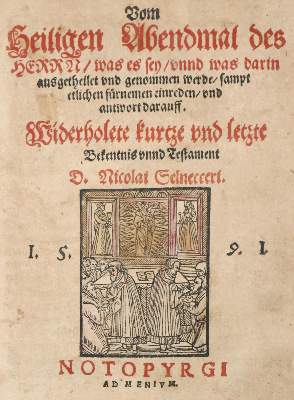 Vom
Heiligen Abendmal des
HERRN/ was es sey/ vnnd was darin
ausgetheilet vnd genommen werde/ sampt
etlichen fürnemen einreden/ vnd
antwort darauff.
Widerholete kurtze vnd letzte
Bekentnis vnnd Testament
D. Nicolai Selnecceri.
1. 5. 9. 1.
NOTOPYRGI
AD MENIVM.